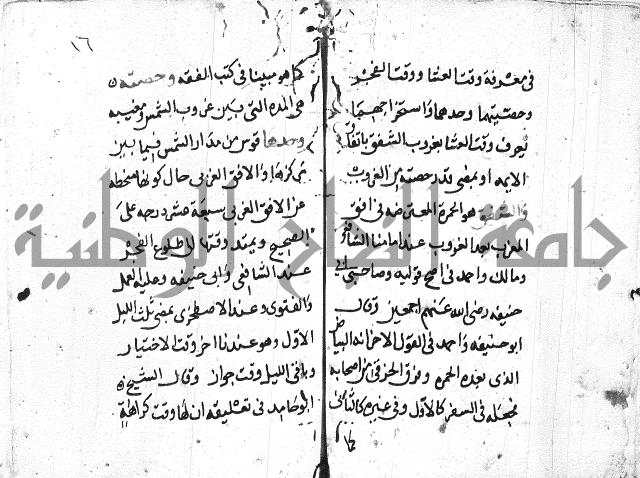 في معرفة وقت العشا ووقت الفجر
وحصتيهما وحدهما واستخراجهما
يعرف وقت العشا بغروب الشفق باتفاق
الايمه او بمضي قدر حصته من الغروب
والشفق هو الحمرة المعترضه في افق
المغرب بعد الغروب عند امامنا الشافعي
ومالك واحمد في اصح قوليه وصاحبي ابي
حنيفه رضي الله عنهم اجمعين وقال
ابو حنيفه واحمد في القول الاخر انه البياض
الذي بعده الحمره وفرق الحزقي من اصحابه
فجعله في السفر كالاول وفي غيره كالثاني
كما
١٦
كما هو مبينا في كتب الفقه وحصته
هي المده التي بين غروب الشمس ومغيبه
وحدها قوس من مدار الشمس فيما بين
مركزها والافق الغربي حال كونها منحطه
عن الافق الغربي سبعة عشر درجه على
الصحيح ويمتد وقتها الى طلوع الفجر
عند الشافعي وابي حنيفه وعليه العمل
والفتوى وعند الاصطخري بمضي ثلث الليل
الاول وهو عندنا اخر وقت الاختيار
وباقي الليل وقت جواز وقال الشيخ
ابو حامد في تعليقه ان لها وقت كراهة
جامعة النجاح الوطنية